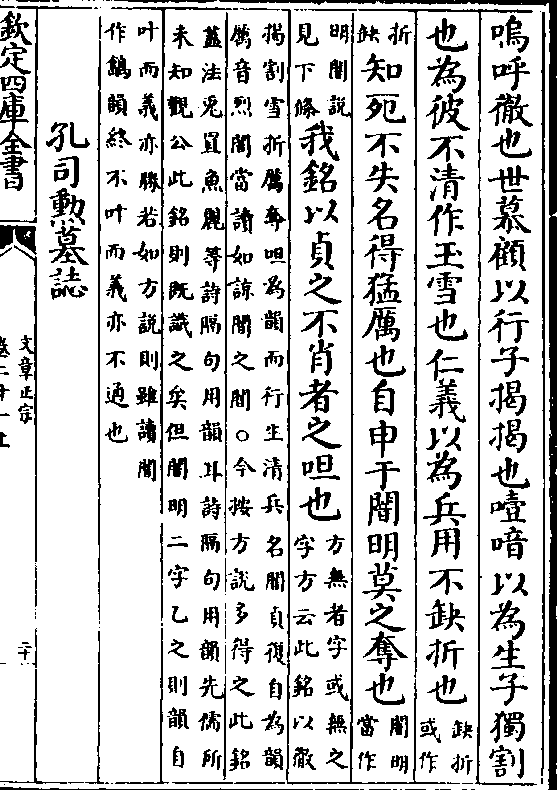 嗚呼徹也世慕顧以行子揭揭也噎喑以為生子獨割
也為彼不清作玉雪也仁義以為兵用不缺折也
缺折
或作
折
缺
知死不失名得猛厲也自申于闇明莫之奪也
闇明
當作
明闇說
見下條
我銘以貞之不肖者之呾也
方無者字或無之
字方云此銘以徹
揭割雪折厲奪呾為韻而行生清兵名闇貞復自為韻
厲音烈闇當讀如諒闇之闇○今按方說多得之此銘
蓋法兎罝魚麗等詩隔句用韻耳詩隔句用韻先儒所
未知觀公此銘則既識之矣但闇明二字乙之則韻自
叶而義亦勝若如方說則雖讀闇
作鶕韻終不叶而義亦不通也
孔司勲墓誌
欽定四庫全書
文章正宗